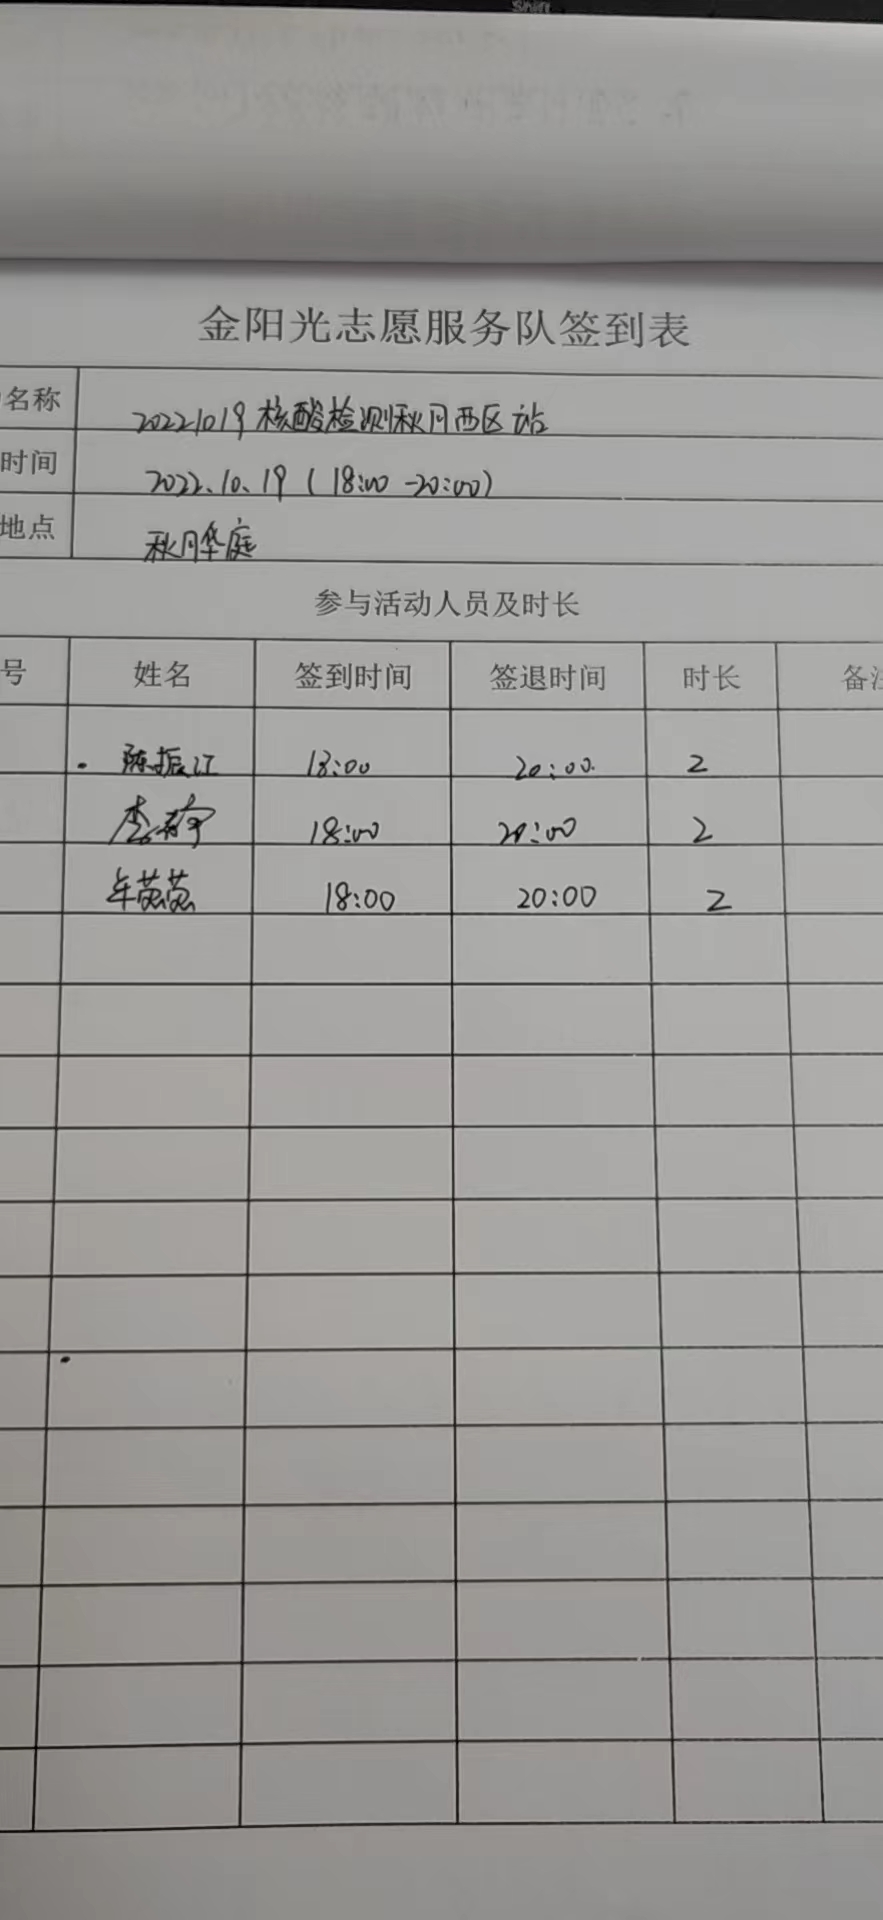 Shift
金阳光志愿服务队签到表
名称 20221019核酸检测秋月西区站
时间 2022.10.19(18:00-20:00)
地点 秋月华庭
参与活动人员及时长
号 姓名 签到时间 签退时间 时长 备注
陈振江 18:00 20:00 2
李 18:00 20:00 2
牟茵茵 18:00 20:00 2